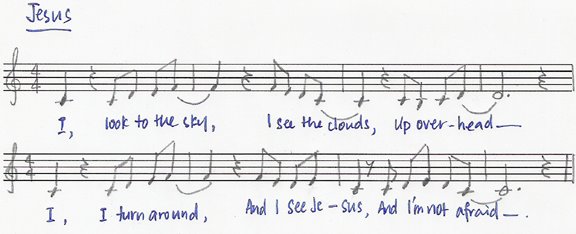 Jesus
I, look to the sky, I see the clouds, up over-head—
I, I turn around, And I see Je-sus, And I'm not afraid—.